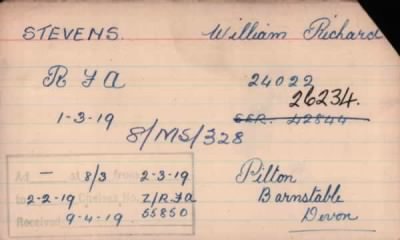 STEVENS. William Richard
R F A 24022
26234.
1-3-19 SER. 42844
8/MS/328
Ad - at 8/3 from 2-3-19
to 2-2-19 Chelsea No. Z/R.F.A
Received 9-4-19 55850
Pilton
Barnstable
Devon